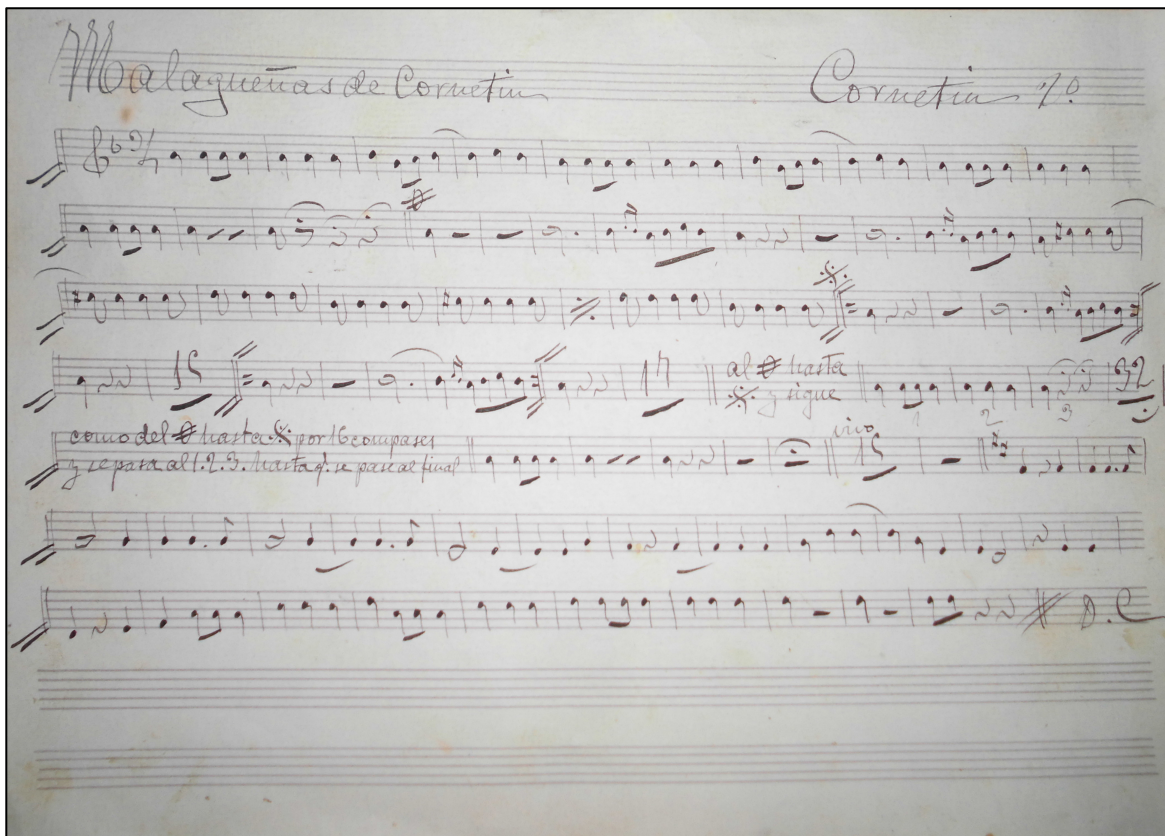 Malagueñas de Cornetin
Cornetin 1º
15
17
al hasta
y sigue
1 2 3
32
como del hasta por 16 compases
y se pasa al 1. 2. 3. hasta q. se pase al final
vivo
15
D.C